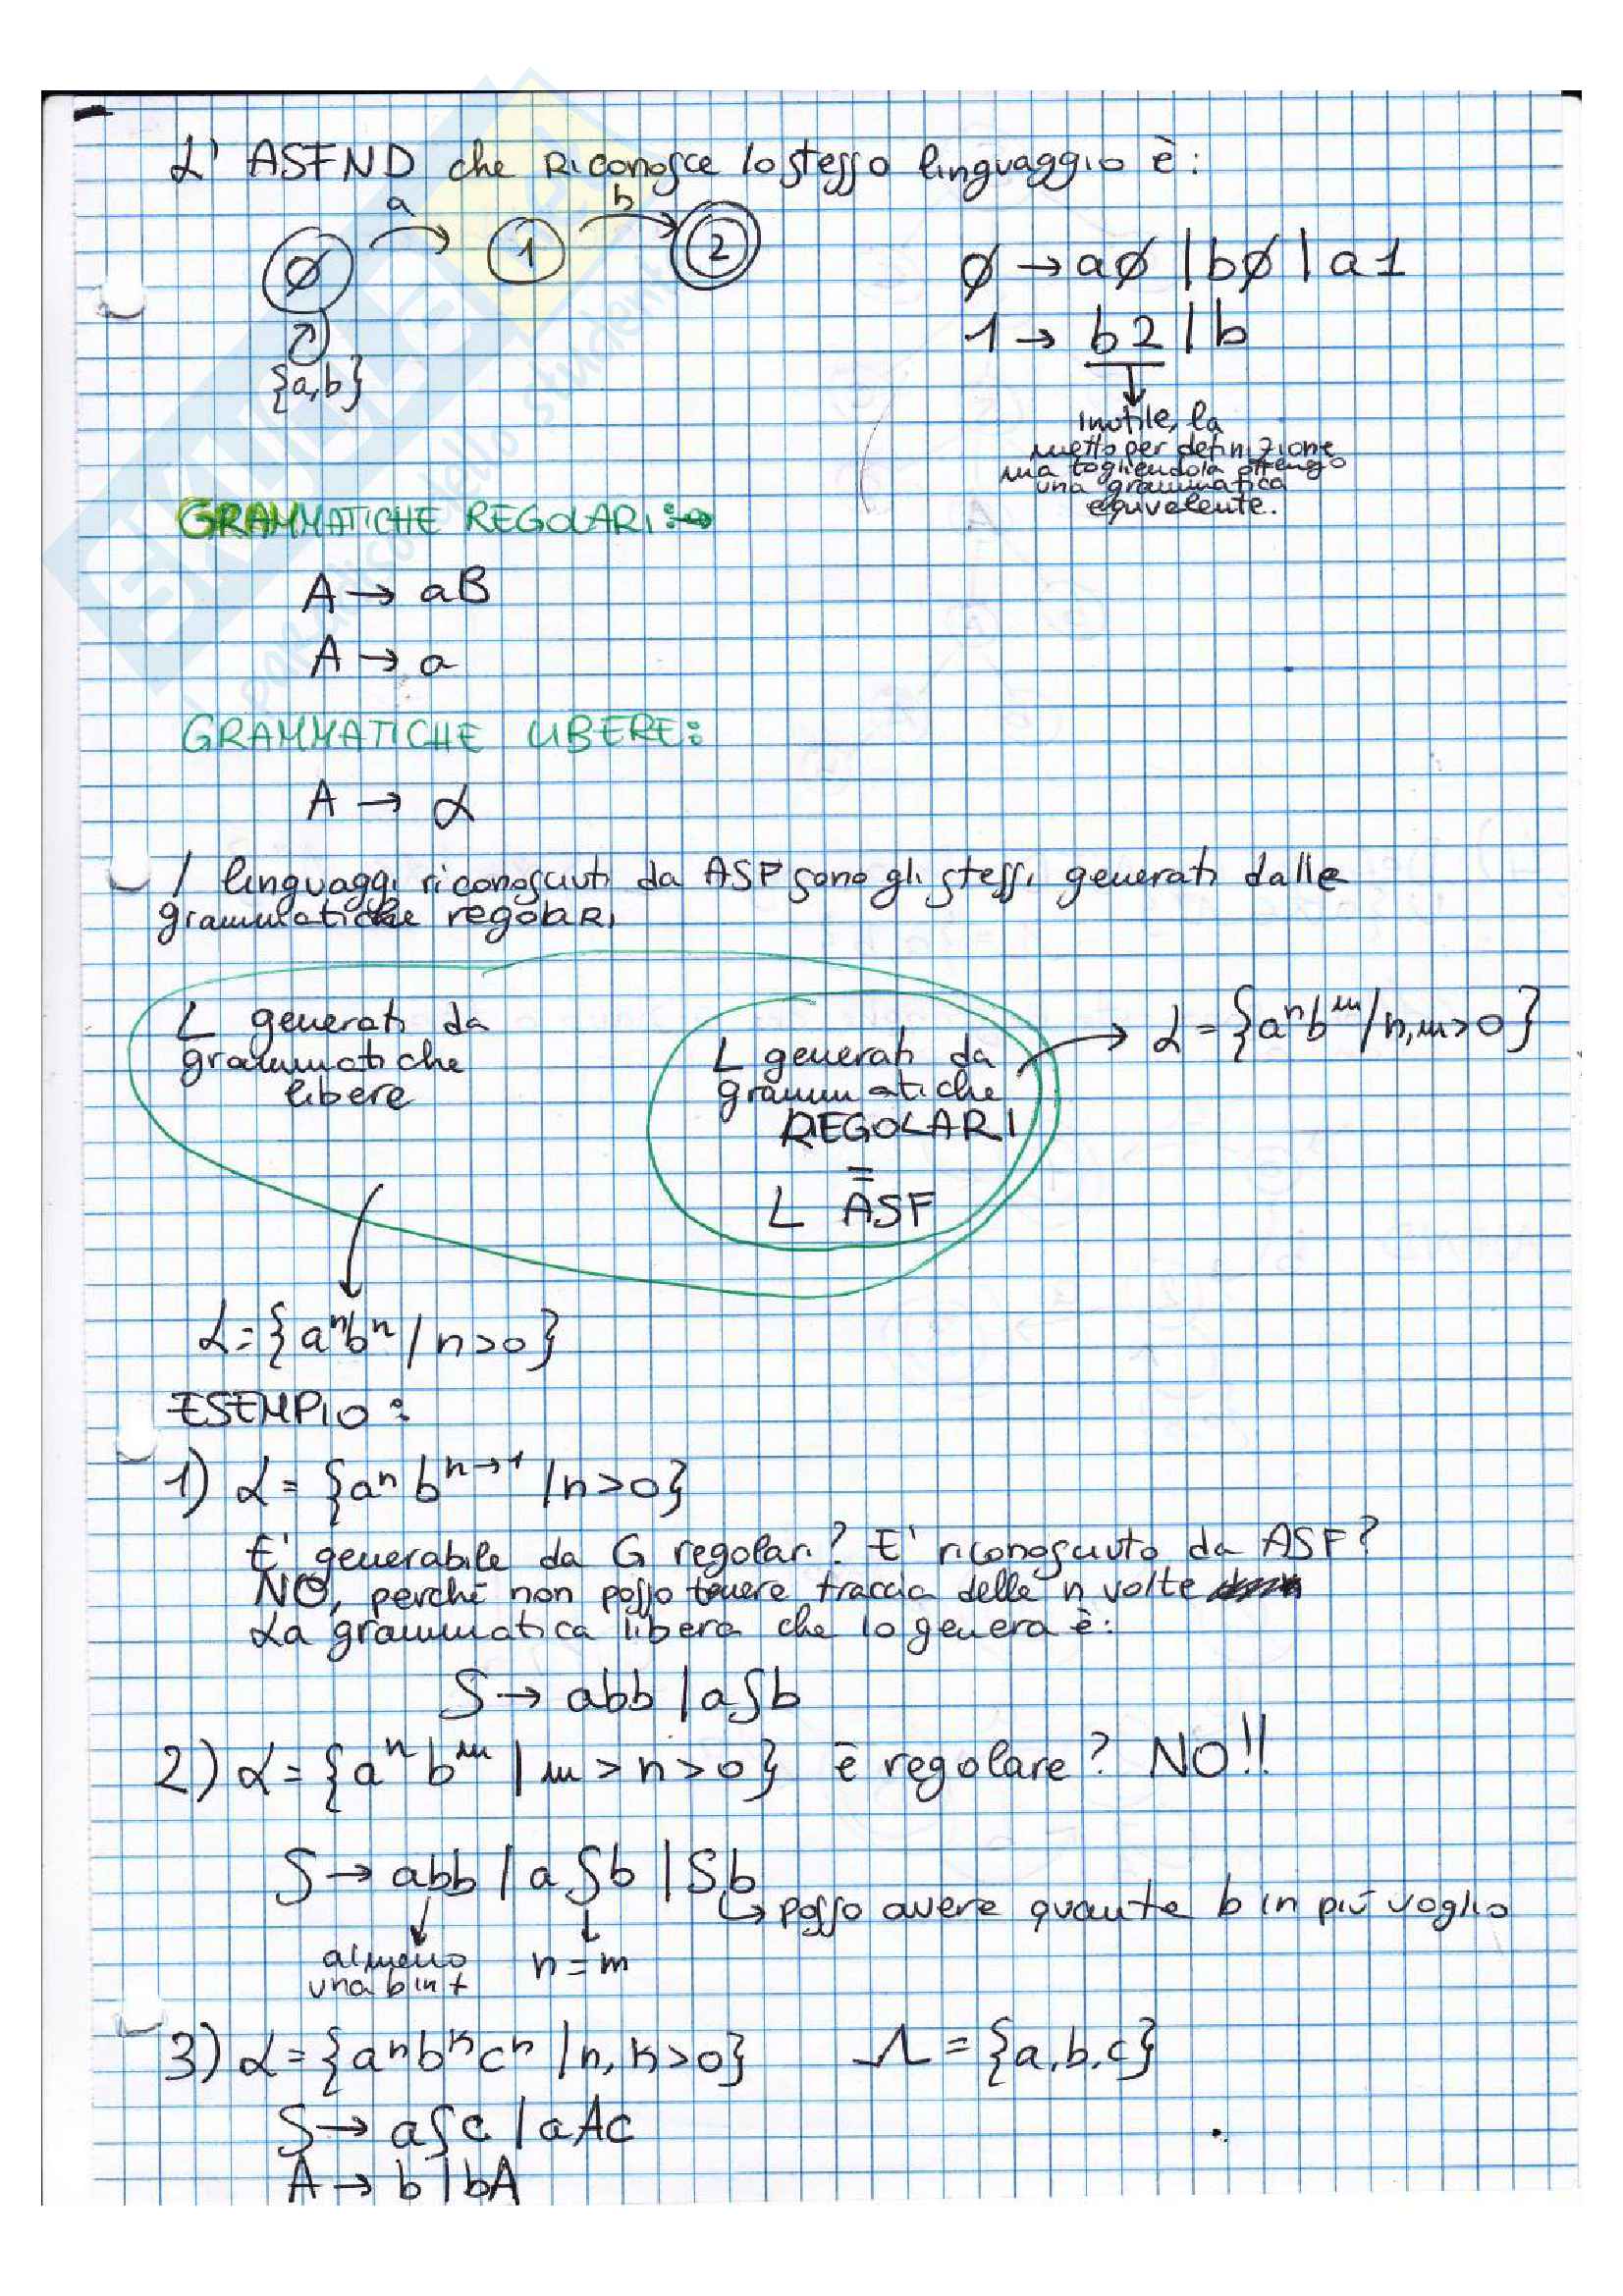 L' ASFND che riconosce lo stesso linguaggio è:
a b
∅ 1 2
{a,b}
∅ → a∅ | b∅ | a1
1 → b2 | b
Inutile, la
metto per definizione
ma togliendola ottengo
una grammatica
equivalente.
GRAMMATICHE REGOLARI:→
A → aB
A → a
GRAMMATICHE LIBERE:
A → α
I linguaggi riconosciuti da ASF sono gli stessi generati dalle
grammatiche regolari
L generati da
grammatiche
libere
L generati da
grammatiche
REGOLARI
=
L ASF
→ L = {aⁿbᵐ / n,m>0}
L = {aⁿbⁿ / n>0}
ESEMPIO:
1) L = {aⁿ bⁿ⁺¹ / n>0}
E' generabile da G regolari? E' riconosciuto da ASF?
NO, perché non posso tenere traccia delle n volte
La grammatica libera che lo genera è:
S → abb | aSb
2) L = {aⁿ bᵐ | m > n > 0} è regolare? NO!!
S → abb | aSb | Sb
posso avere quante b in più voglio
almeno
una b in +
n = m
3) L = {aⁿbᵏcⁿ | n, k>0} Λ = {a,b,c}
S → aSc | aAc
A → b | bA
SKUOLA
il paradiso dello studente